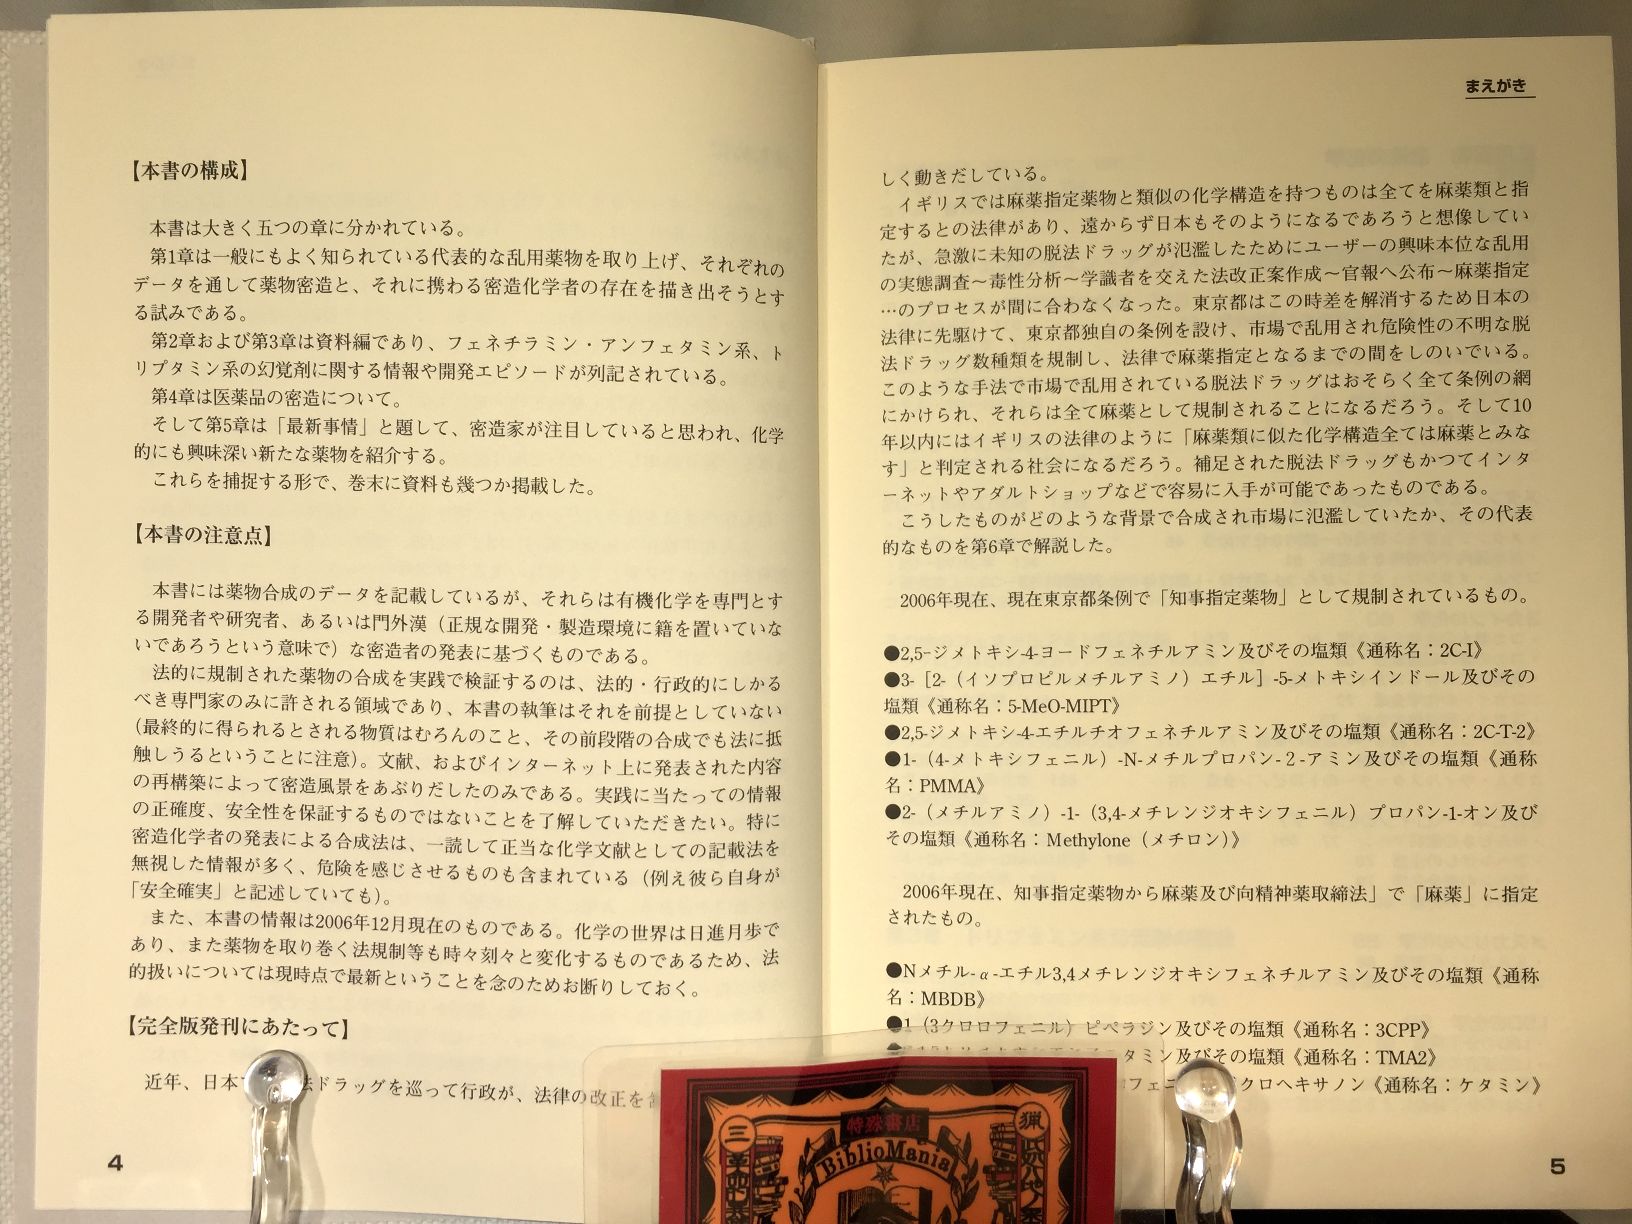 【本書の構成】
本書は大きく五つの章に分かれている。
第1章は一般にもよく知られている代表的な乱用薬物を取り上げ、それぞれの
データを通して薬物密造と、それに携わる密造化学者の存在を描き出そうとす
る試みである。
第2章および第3章は資料編であり、フェネチラミン・アンフェタミン系、ト
リプタミン系の幻覚剤に関する情報や開発エピソードが列記されている。
第4章は医薬品の密造について。
そして第5章は「最新事情」と題して、密造家が注目していると思われ、化学
的にも興味深い新たな薬物を紹介する。
これらを捕捉する形で、巻末に資料も幾つか掲載した。
【本書の注意点】
本書には薬物合成のデータを記載しているが、それらは有機化学を専門とす
る開発者や研究者、あるいは門外漢（正規な開発・製造環境に籍を置いていな
いであろうという意味で）な密造者の発表に基づくものである。
法的に規制された薬物の合成を実践で検証するのは、法的・行政的にしかる
べき専門家のみに許される領域であり、本書の執筆はそれを前提としていない
（最終的に得られるとされる物質はむろんのこと、その前段階の合成でも法に抵
触しうるということに注意）。文献、およびインターネット上に発表された内容
の再構築によって密造風景をあぶりだしたのみである。実践に当たっての情報
の正確度、安全性を保証するものではないことを了解していただきたい。特に
密造化学者の発表による合成法は、一読して正当な化学文献としての記載法を
無視した情報が多く、危険を感じさせるものも含まれている（例え彼ら自身が
「安全確実」と記述していても）。
また、本書の情報は2006年12月現在のものである。化学の世界は日進月歩で
あり、また薬物を取り巻く法規制等も時々刻々と変化するものであるため、法
的扱いについては現時点で最新ということを念のためお断りしておく。
【完全版発刊にあたって】
近年、日本で 法ドラッグを巡って行政が、法律の改正を
4
まえがき
しく動きだしている。
イギリスでは麻薬指定薬物と類似の化学構造を持つものは全てを麻薬類と指
定するとの法律があり、遠からず日本もそのようになるであろうと想像してい
たが、急激に未知の脱法ドラッグが氾濫したためにユーザーの興味本位な乱用
の実態調査～毒性分析～学識者を交えた法改正案作成～官報へ公布～麻薬指定
…のプロセスが間に合わなくなった。東京都はこの時差を解消するため日本の
法律に先駆けて、東京都独自の条例を設け、市場で乱用され危険性の不明な脱
法ドラッグ数種類を規制し、法律で麻薬指定となるまでの間をしのいでいる。
このような手法で市場で乱用されている脱法ドラッグはおそらく全て条例の網
にかけられ、それらは全て麻薬として規制されることになるだろう。そして10
年以内にはイギリスの法律のように「麻薬類に似た化学構造全ては麻薬とみな
す」と判定される社会になるだろう。補足された脱法ドラッグもかつてインタ
ーネットやアダルトショップなどで容易に入手が可能であったものである。
こうしたものがどのような背景で合成され市場に氾濫していたか、その代表
的なものを第6章で解説した。
2006年現在、現在東京都条例で「知事指定薬物」として規制されているもの。
●2,5-ジメトキシ-4-ヨードフェネチルアミン及びその塩類《通称名：2C-I》
●3-［2-（イソプロピルメチルアミノ）エチル］-5-メトキシインドール及びその
塩類《通称名：5-MeO-MIPT》
●2,5-ジメトキシ-4-エチルチオフェネチルアミン及びその塩類《通称名：2C-T-2》
●1-（4-メトキシフェニル）-N-メチルプロパン-2-アミン及びその塩類《通称
名：PMMA》
●2-（メチルアミノ）-1-（3,4-メチレンジオキシフェニル）プロパン-1-オン及び
その塩類《通称名：Methylone（メチロン）》
2006年現在、知事指定薬物から麻薬及び向精神薬取締法」で「麻薬」に指定
されたもの。
●Nメチル-α-エチル3,4メチレンジオキシフェネチルアミン及びその塩類《通称
名：MBDB》
●1（3クロロフェニル）ピペラジン及びその塩類《通称名：3CPP》
タミン及びその塩類《通称名：TMA2》
クロヘキサノン《通称名：ケタミン》
5
特殊書店
BiblioMania
三
猟